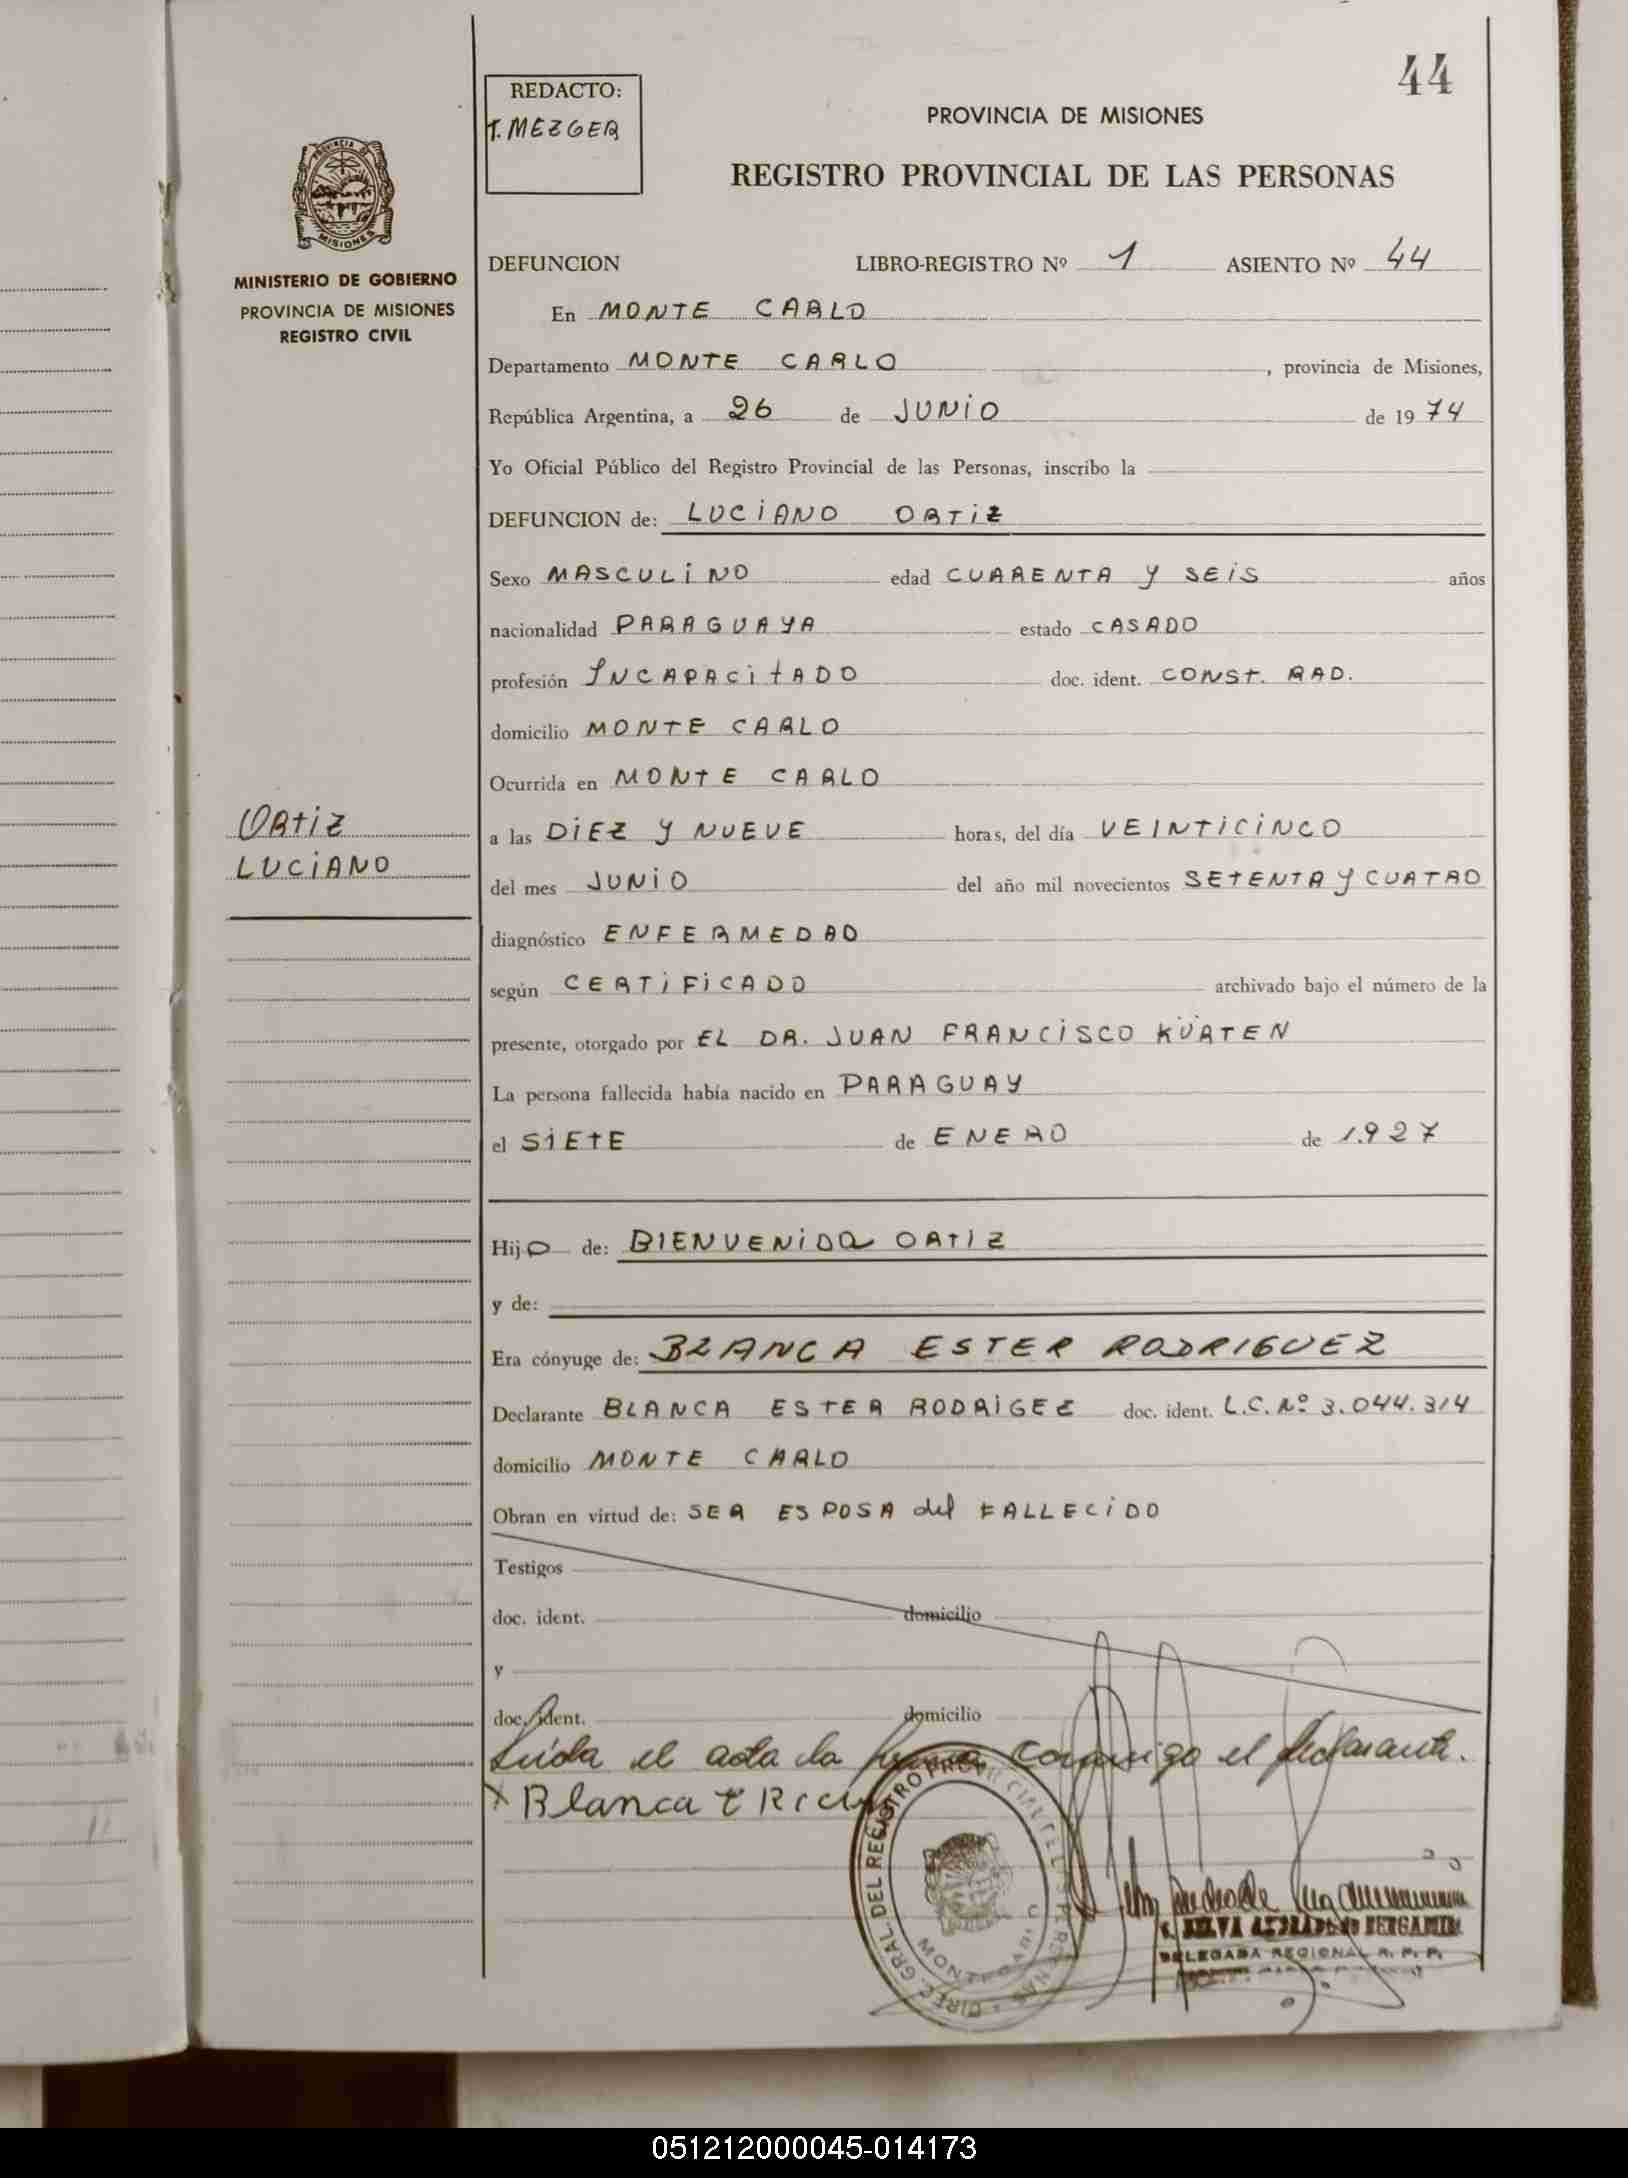 44
REDACTO:
T. MEZGER
PROVINCIA DE MISIONES
REGISTRO PROVINCIAL DE LAS PERSONAS
PROVINCIA DE
MISIONES
MINISTERIO DE GOBIERNO
PROVINCIA DE MISIONES
REGISTRO CIVIL
DEFUNCION LIBRO-REGISTRO Nº 1 ASIENTO Nº 44
En MONTE CARLO
Departamento MONTE CARLO , provincia de Misiones,
República Argentina, a 26 de JUNIO de 1974
Yo Oficial Público del Registro Provincial de las Personas, inscribo la
DEFUNCION de: LUCIANO ORTIZ
Sexo MASCULINO edad CUARENTA Y SEIS años
nacionalidad PARAGUAYA estado CASADO
profesión INCAPACITADO doc. ident. CONST. RAD.
domicilio MONTE CARLO
Ocurrida en MONTE CARLO
ORTIZ
LUCIANO
a las DIEZ Y NUEVE horas, del día VEINTICINCO
del mes JUNIO del año mil novecientos SETENTA Y CUATRO
diagnóstico ENFERMEDAD
según CERTIFICADO archivado bajo el número de la
presente, otorgado por EL DR. JUAN FRANCISCO KÜRTEN
La persona fallecida había nacido en PARAGUAY
el SIETE de ENERO de 1.927
Hijo de: BIENVENIDA ORTIZ
y de:
Era cónyuge de: BLANCA ESTER RODRIGUEZ
Declarante BLANCA ESTER RODRIGEZ doc. ident. L.C. Nº 3.044.314
domicilio MONTE CARLO
Obran en virtud de: SER ESPOSA del FALLECIDO
Testigos
doc. ident. domicilio
y
doc. ident. domicilio
Leída el acta la firma conmigo el declarante.
x Blanca E
DIREC. GRAL. DEL REGISTRO PROVINCIAL DE LAS PERSONAS
DELEGADA REGIONAL R. P. P.
051212000045-014173